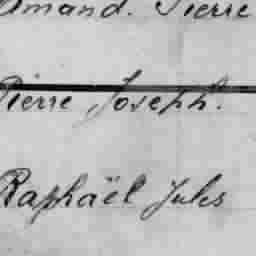 Amand. Pierre
Pierre Joseph.
Raphaël Jules